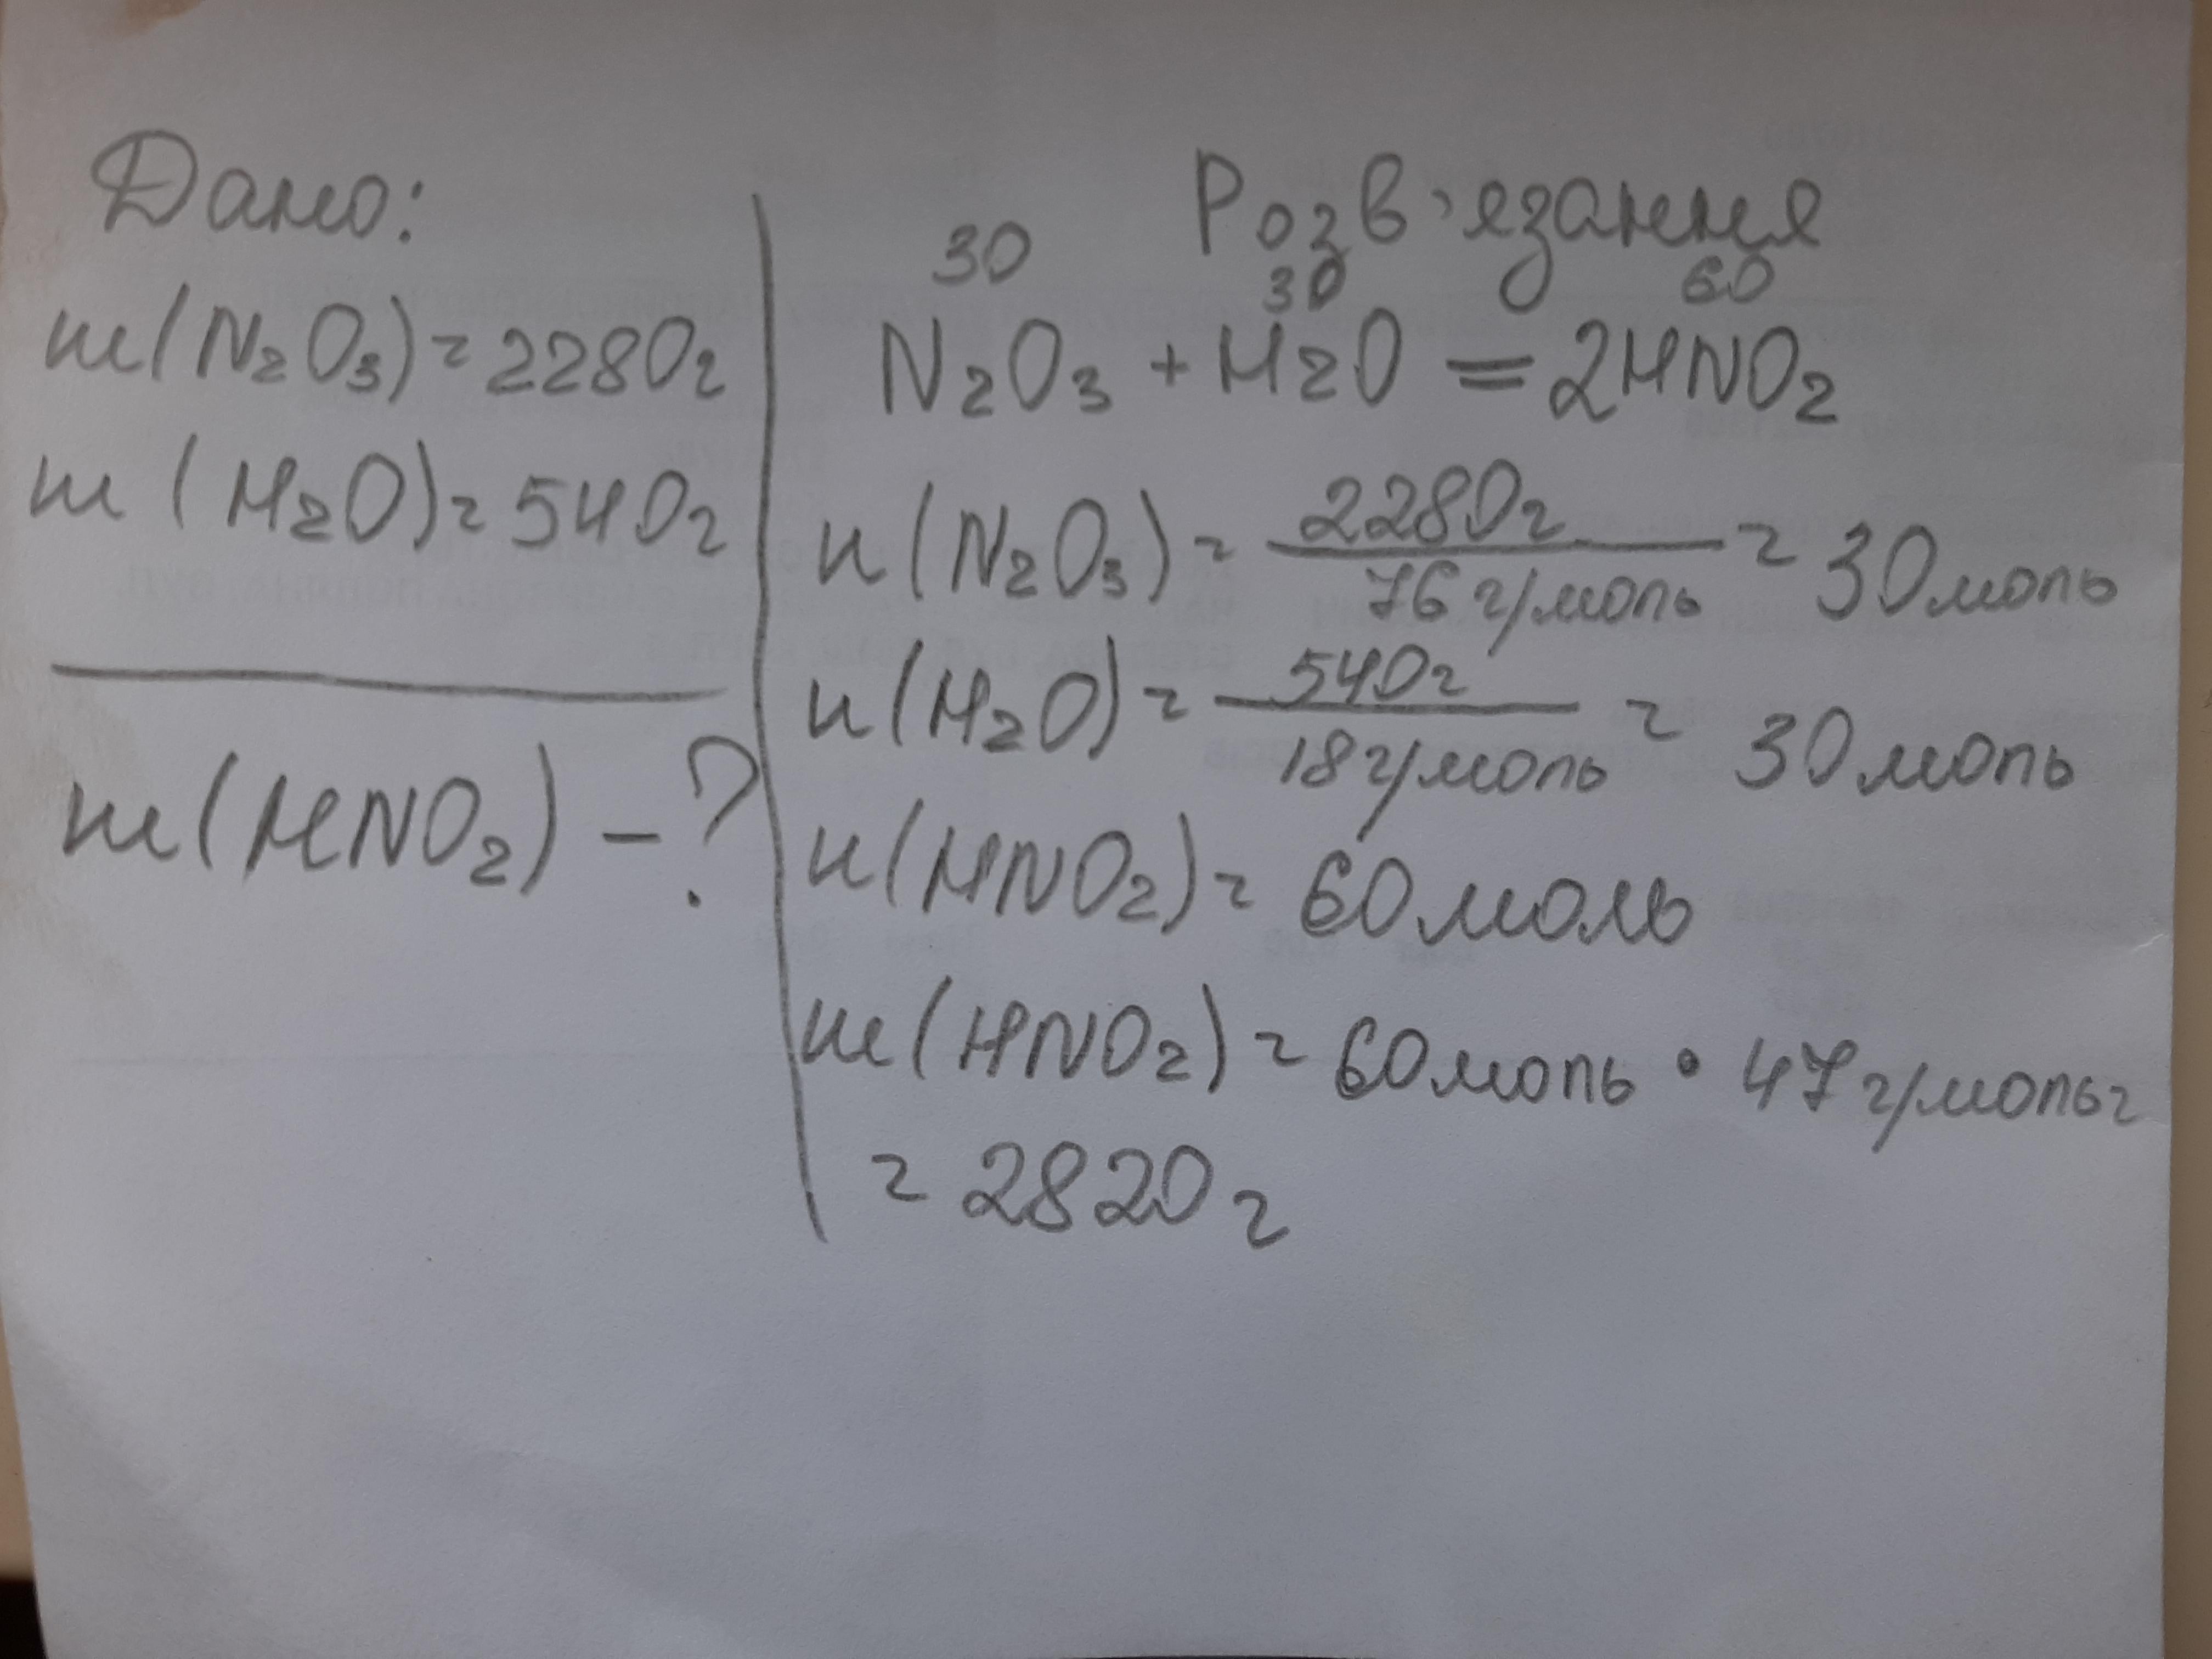 Дано:
m(N₂O₃)=2280г
m(H₂O)=540г
m(HNO₂) - ?
Розв'язання
30 30 60
N₂O₃ + H₂O = 2HNO₂
n(N₂O₃) = 2280г / 76 г/моль = 30 моль
n(H₂O) = 540г / 18 г/моль = 30 моль
n(HNO₂) = 60 моль
m(HNO₂) = 60 моль • 47 г/моль =
= 2820 г